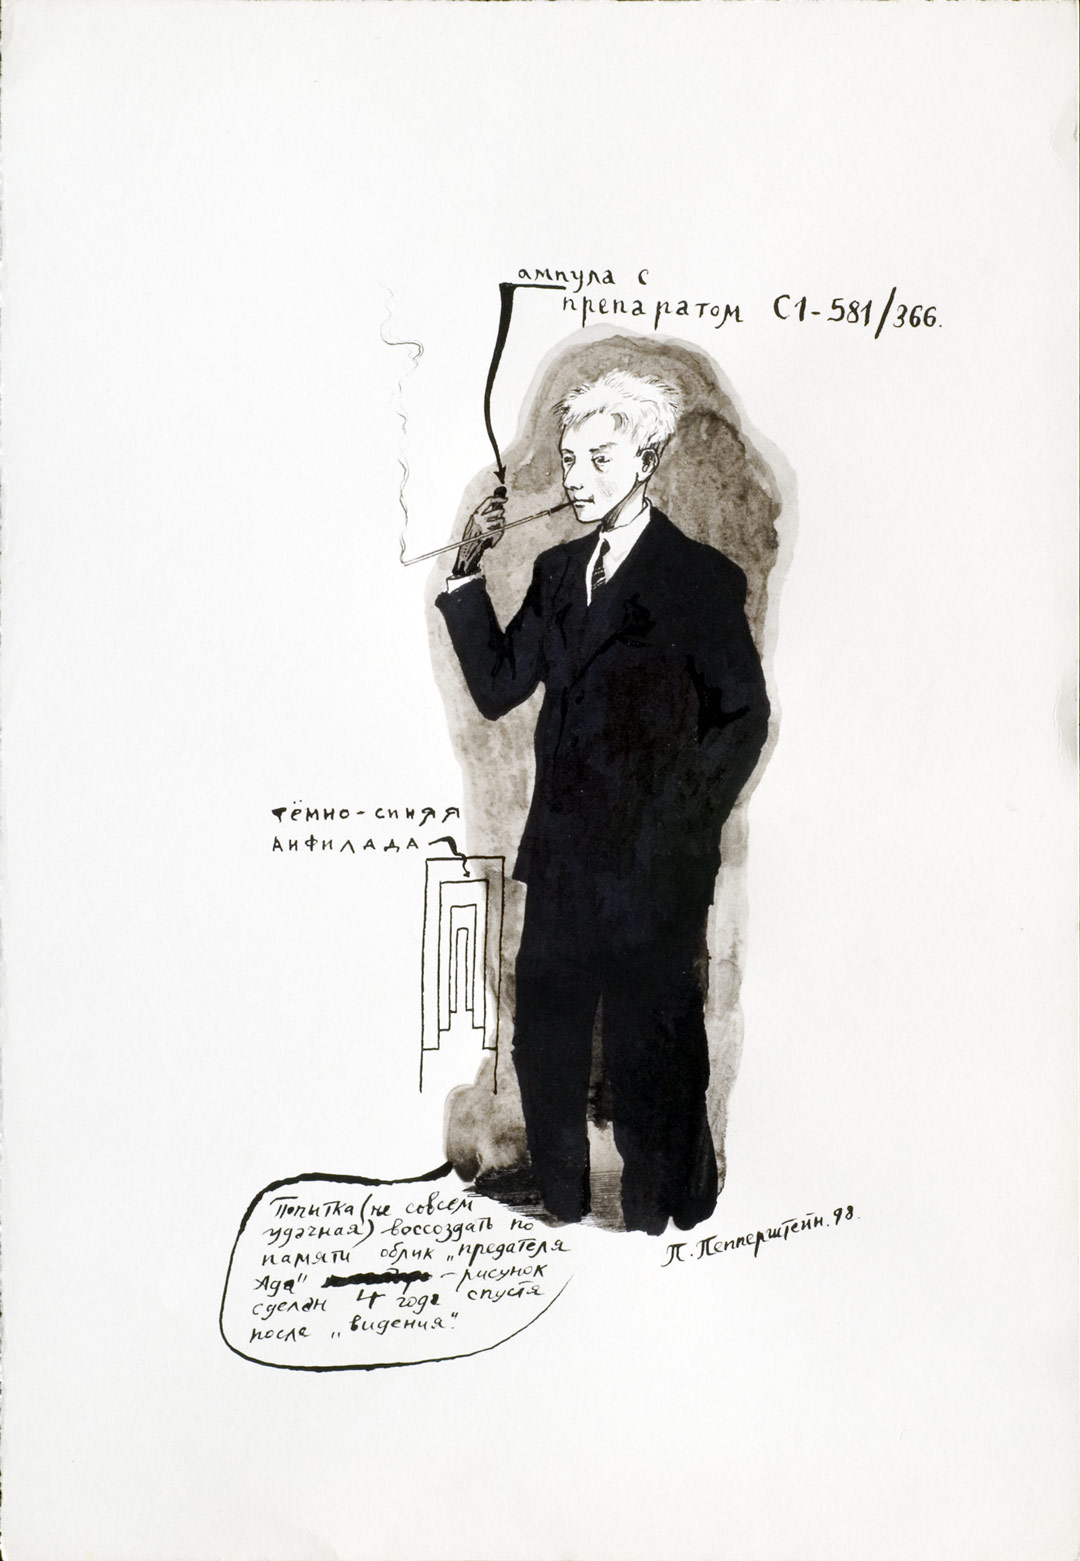 ампула с
препаратом С1-581/366.
тёмно-синяя
анфилада
Попытка (не совсем
удачная) воссоздать по
памяти облик „предателя
Ада" - рисунок
сделан 4 года спустя
после „видения".
П. Пепперштейн. 98.